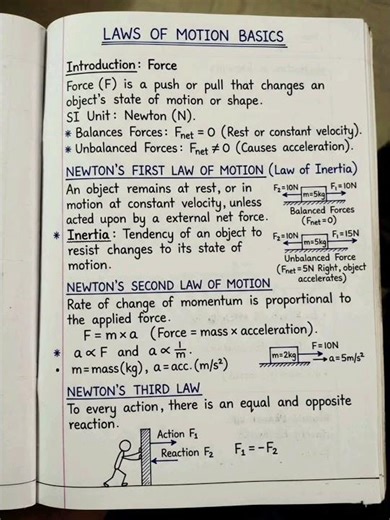 LAWS OF MOTION BASICS
Introduction: Force
Force (F) is a push or pull that changes an
object's state of motion or shape.
SI Unit: Newton (N).
* Balances Forces: Fnet = 0 (Rest or constant velocity).
* Unbalanced Forces: Fnet ≠ 0 (Causes acceleration).
NEWTON'S FIRST LAW OF MOTION (Law of Inertia)
An object remains at rest, or in
motion at constant velocity, unless
acted upon by a external net force.
* Inertia: Tendency of an object to
resist changes to its state of
motion.
F₂=10N m=5kg F₁=10N
Balanced Forces
(Fnet=0)
F₂=10N m=5kg F₁=15N
Unbalanced Force
(Fnet=5N Right, object
accelerates)
NEWTON'S SECOND LAW OF MOTION
Rate of change of momentum is proportional to
the applied force.
F = m × a (Force = mass × acceleration).
* a ∝ F and a ∝ 1/m.
• m=mass(kg), a=acc.(m/s²)
F=10N
m=2kg
a=5m/s²
NEWTON'S THIRD LAW
To every action, there is an equal and opposite
reaction.
Action F₁
Reaction F₂
F₁ = -F₂